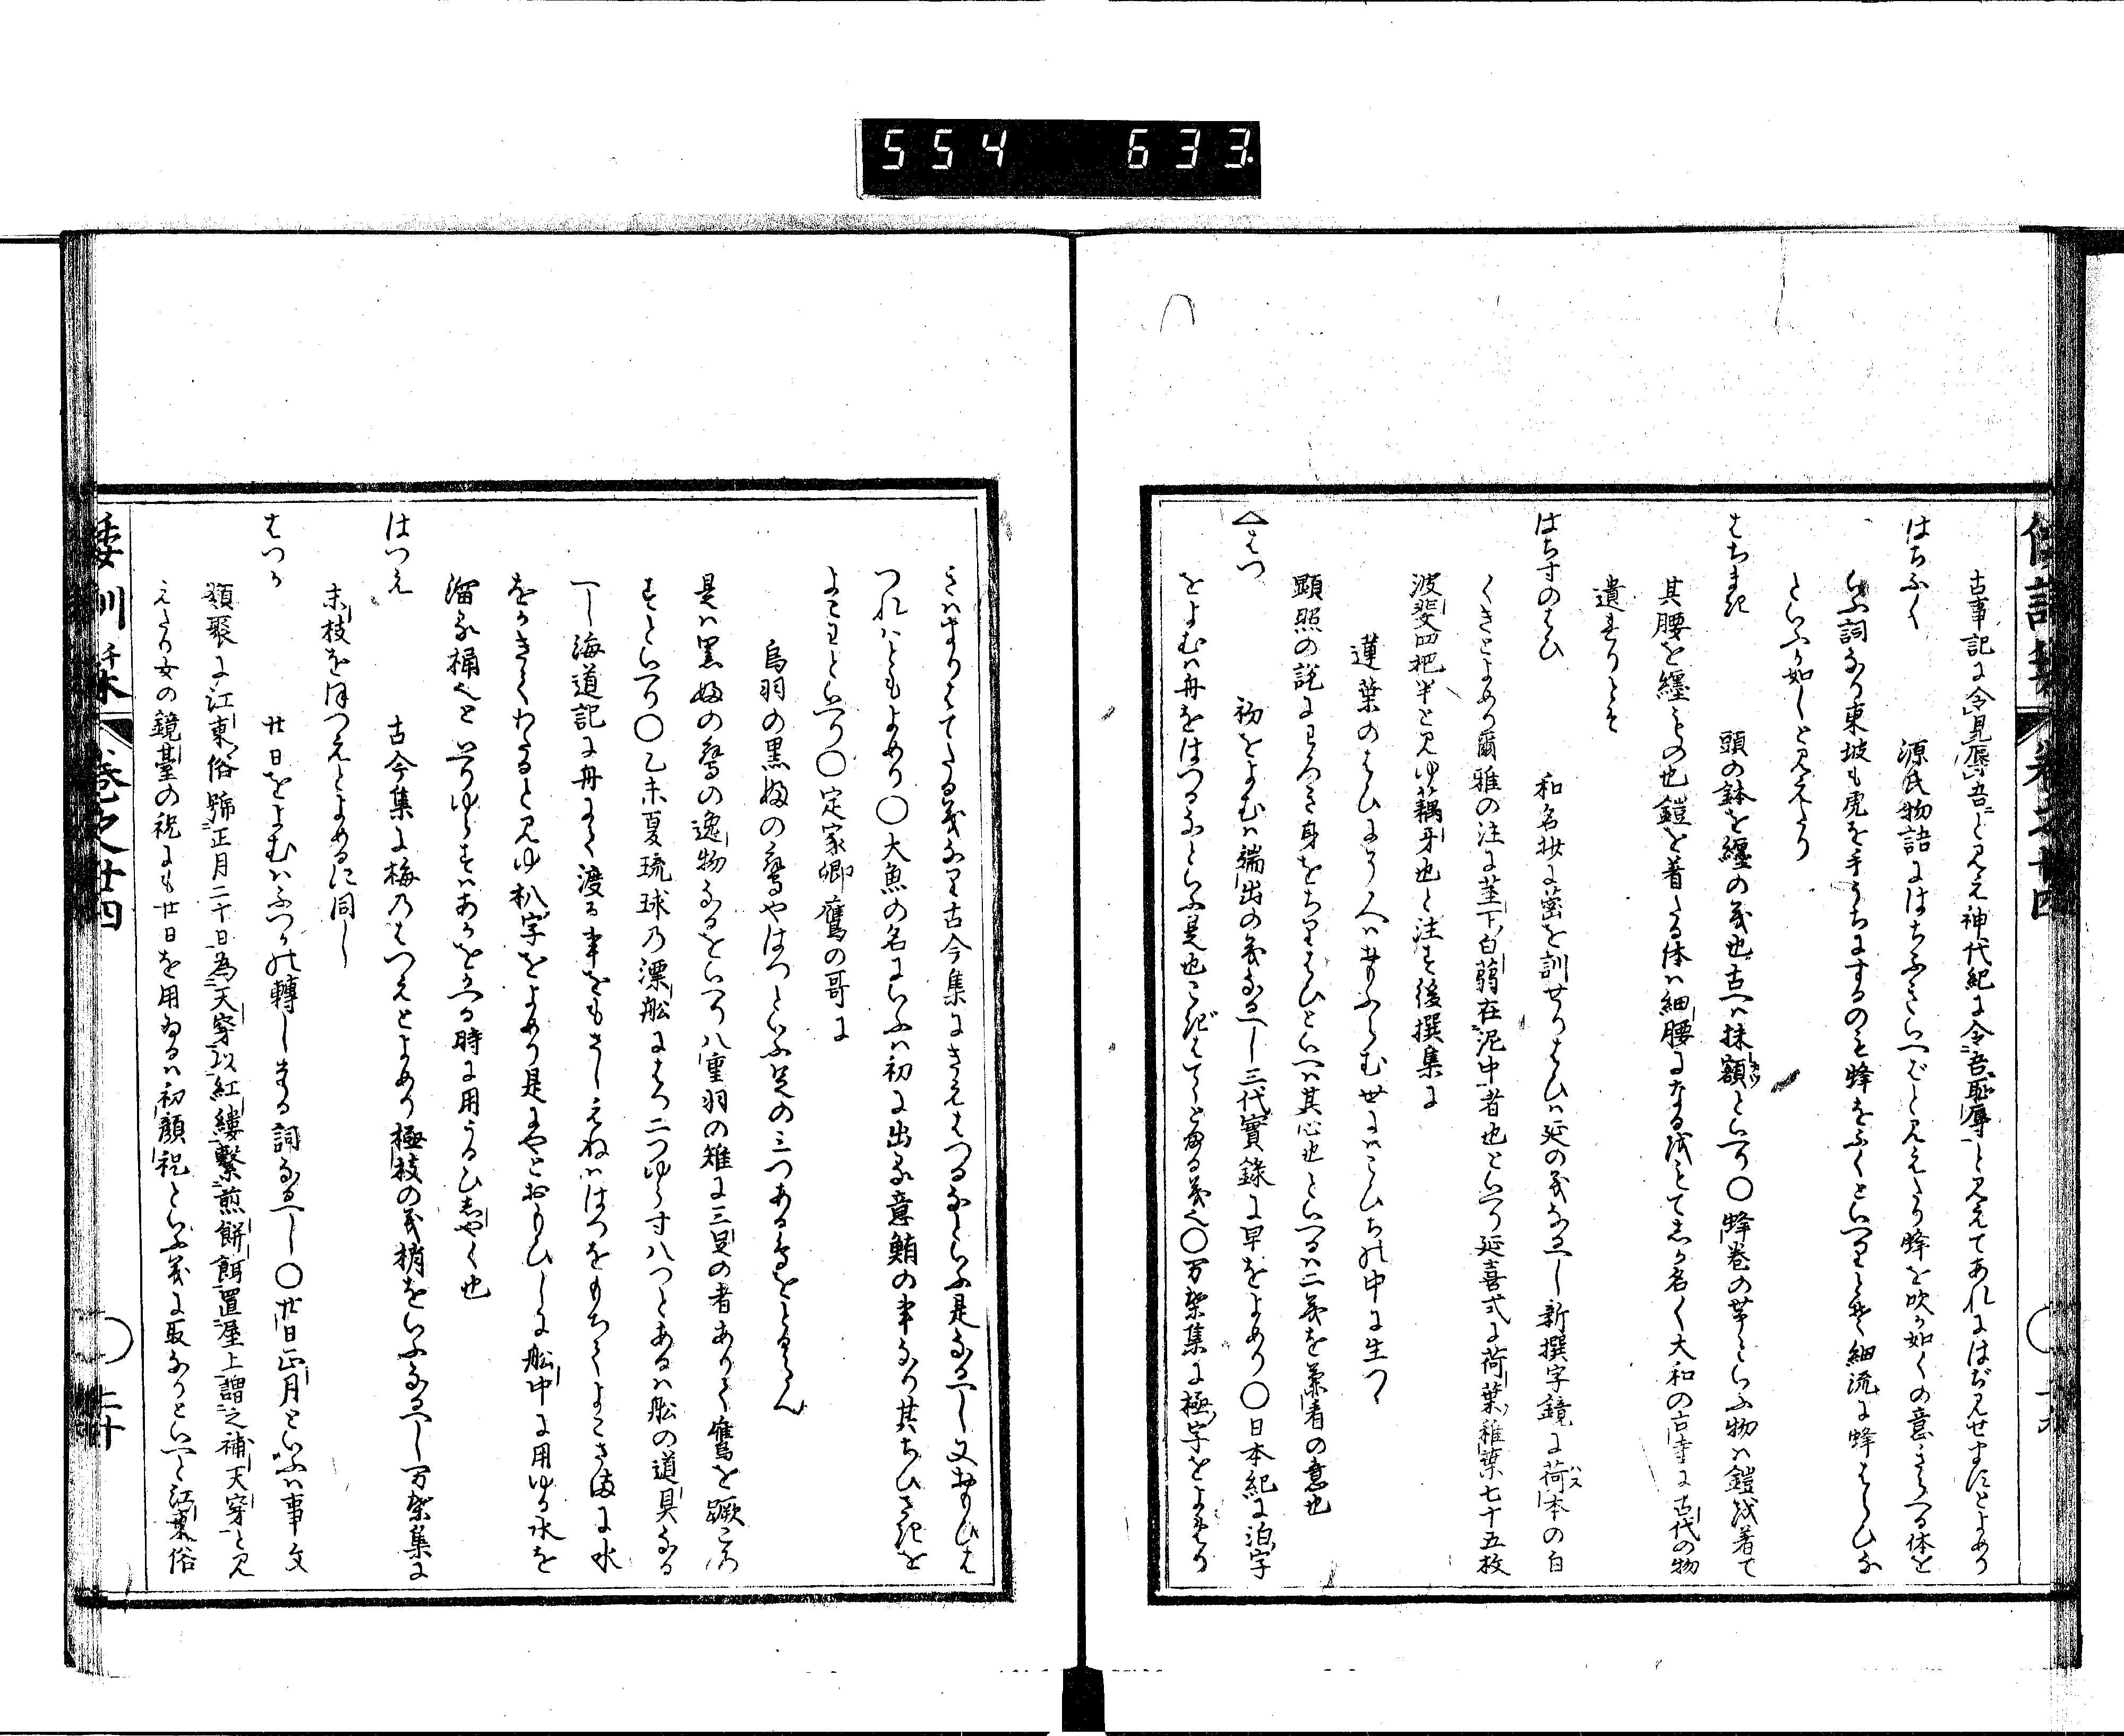 554 633
古事記に令見辱吾と見え神代紀に令吾恥辱と見えてあれにはぢ見せまにとよめり
はちふく　源氏物語にはちふきいへどと見えたり蜂を吹か如くの意さらへる体を
いふ詞なり東坡も虎を手うちにするのも蜂をふくといへりとぞ細流に蜂はらひな
といふか如しと見えたり
はちまき　頭の鉢を纏の義也古へは抹額といへり〇蜂巻の草といふ物は鎧を着て
其腰を纏もの也鎧を着たる体は細腰になるをもてしか名く大和の古寺に古代の物
遺れりとそ
はちすのはひ　和名抄に蔤を訓せりはひは延の義なるへし新撰字鏡に荷本の白
くきとよめり爾雅の注に茎下白蒻在泥中者也といへり延喜式に荷葉稚葉七十五枚
波斐四把半と見ゆ藕牙也と注す後撰集に
蓮葉のはひにうへはおもふらむ世にはこひちの中に生つゝ
顕照の説にわろき身をちりはひといへは其心也といへるは二義を兼者の意也
△はつ　初をよむは端出の義なるへし三代實録に早をよめり〇日本紀に泊字
をよむは舟をはつるなといふ是也こぎはてゝとある義也〇万葉集に極字をよめり
きはまりはてたる義なり古今集にきえはつるなといふ是なるへし又おもひは
つれはともよめり〇大魚の名にいふは初に出る意鮪の事なり其ちひさきを
よこわといへり〇定家卿鷹の哥に
鳥羽の黒ぬの鷹やはつといふ足の三つある鳥をとるらん
是は黒ぬの鷹の逸物なるをいへり八重羽の雉に三足の者ありて鷹を蹶ころ
すといへり〇乙未夏琉球乃漂船にはつ二つゆす八つとあるは船の道具なる
へし海道記に舟にて渡る事をもさしえねははつをもちてよこさまに水
をかきてわたると見ゆ朳字をよめり是にやとおもひしに船中に用ゆる水を
溜る桶也といへりゆすはあかをかへる時に用うるひしやく也
はつえ　古今集に梅乃はつえとよめり極枝の義梢をいふなるへし万葉集に
末枝をほつえとよめるに同し
はつか　廿日をよむははふつかの轉しまる詞なるへし〇廿日正月といふは事文
類聚に江東俗号正月二十日為天穿以紅縷繋煎餅餌置屋上謂之補天穿と見
えたり女の鏡臺の祝にも廿日を用ゐるは初顔祝といふ義に取なりといへと江東俗
倭訓栞　巻之廿四　二十